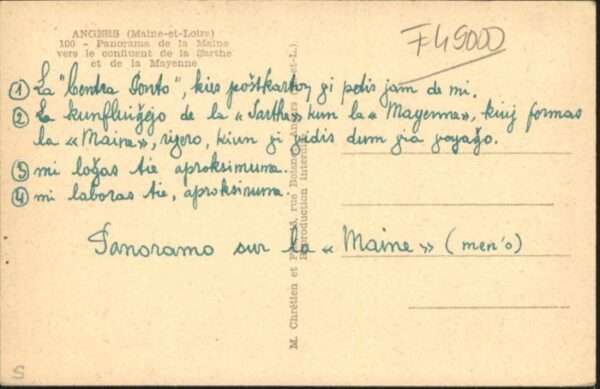 ANGERS (Maine-et-Loire)
100 - Panorama de la Maine
vers le confluent de la Sarthe
et de la Mayenne
F49000
① La "Centra Ponto", kies poŝtkarton ĝi petis jam de mi.
② La kunfluiĝejo de la «Sarthe» kun la «Mayenne», kiuj formas
la «Maine», rivero, kiun ĝi vidis dum ĝia voyaĝo.
③ mi loĝas tie aproksimuma.
④ mi laboras tie, aproksimuma.
Panoramo sur la «Maine» (men'o)
M. Chrétien et rue Angers
Reproduction interdite
S